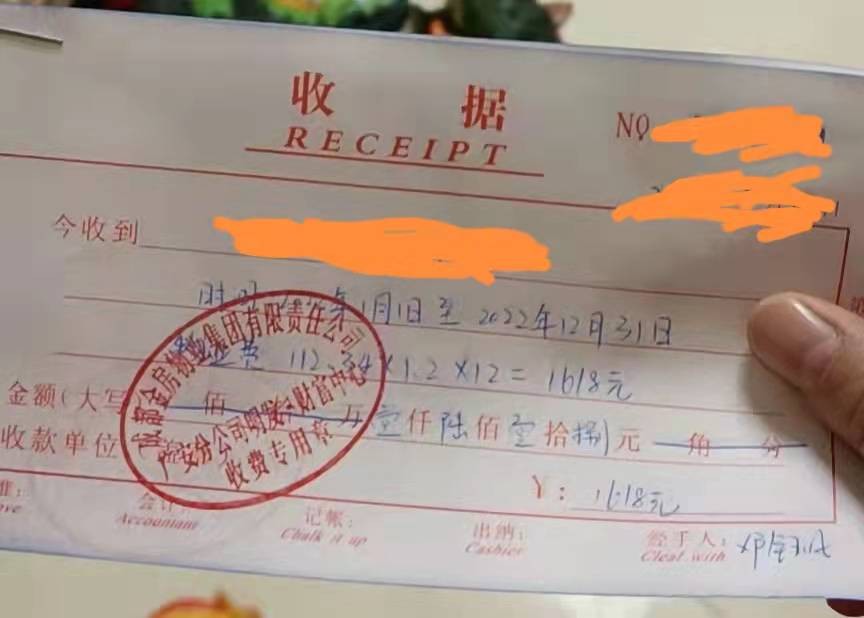 收 据
RECEIPT
NO
今收到
时间 年1月1日至2022年12月31日
费 112.34×1.2×12=1618元
金额(大写 佰 万壹仟陆佰壹拾捌元 角 分
收款单位
¥: 1618元
会计:
Accountant
记帐:
Chalk it up
出纳:
Cashier
经手人:
Cleat with
成都金房物业集团有限责任公司
广安分公司明发·财富中心
收费专用章